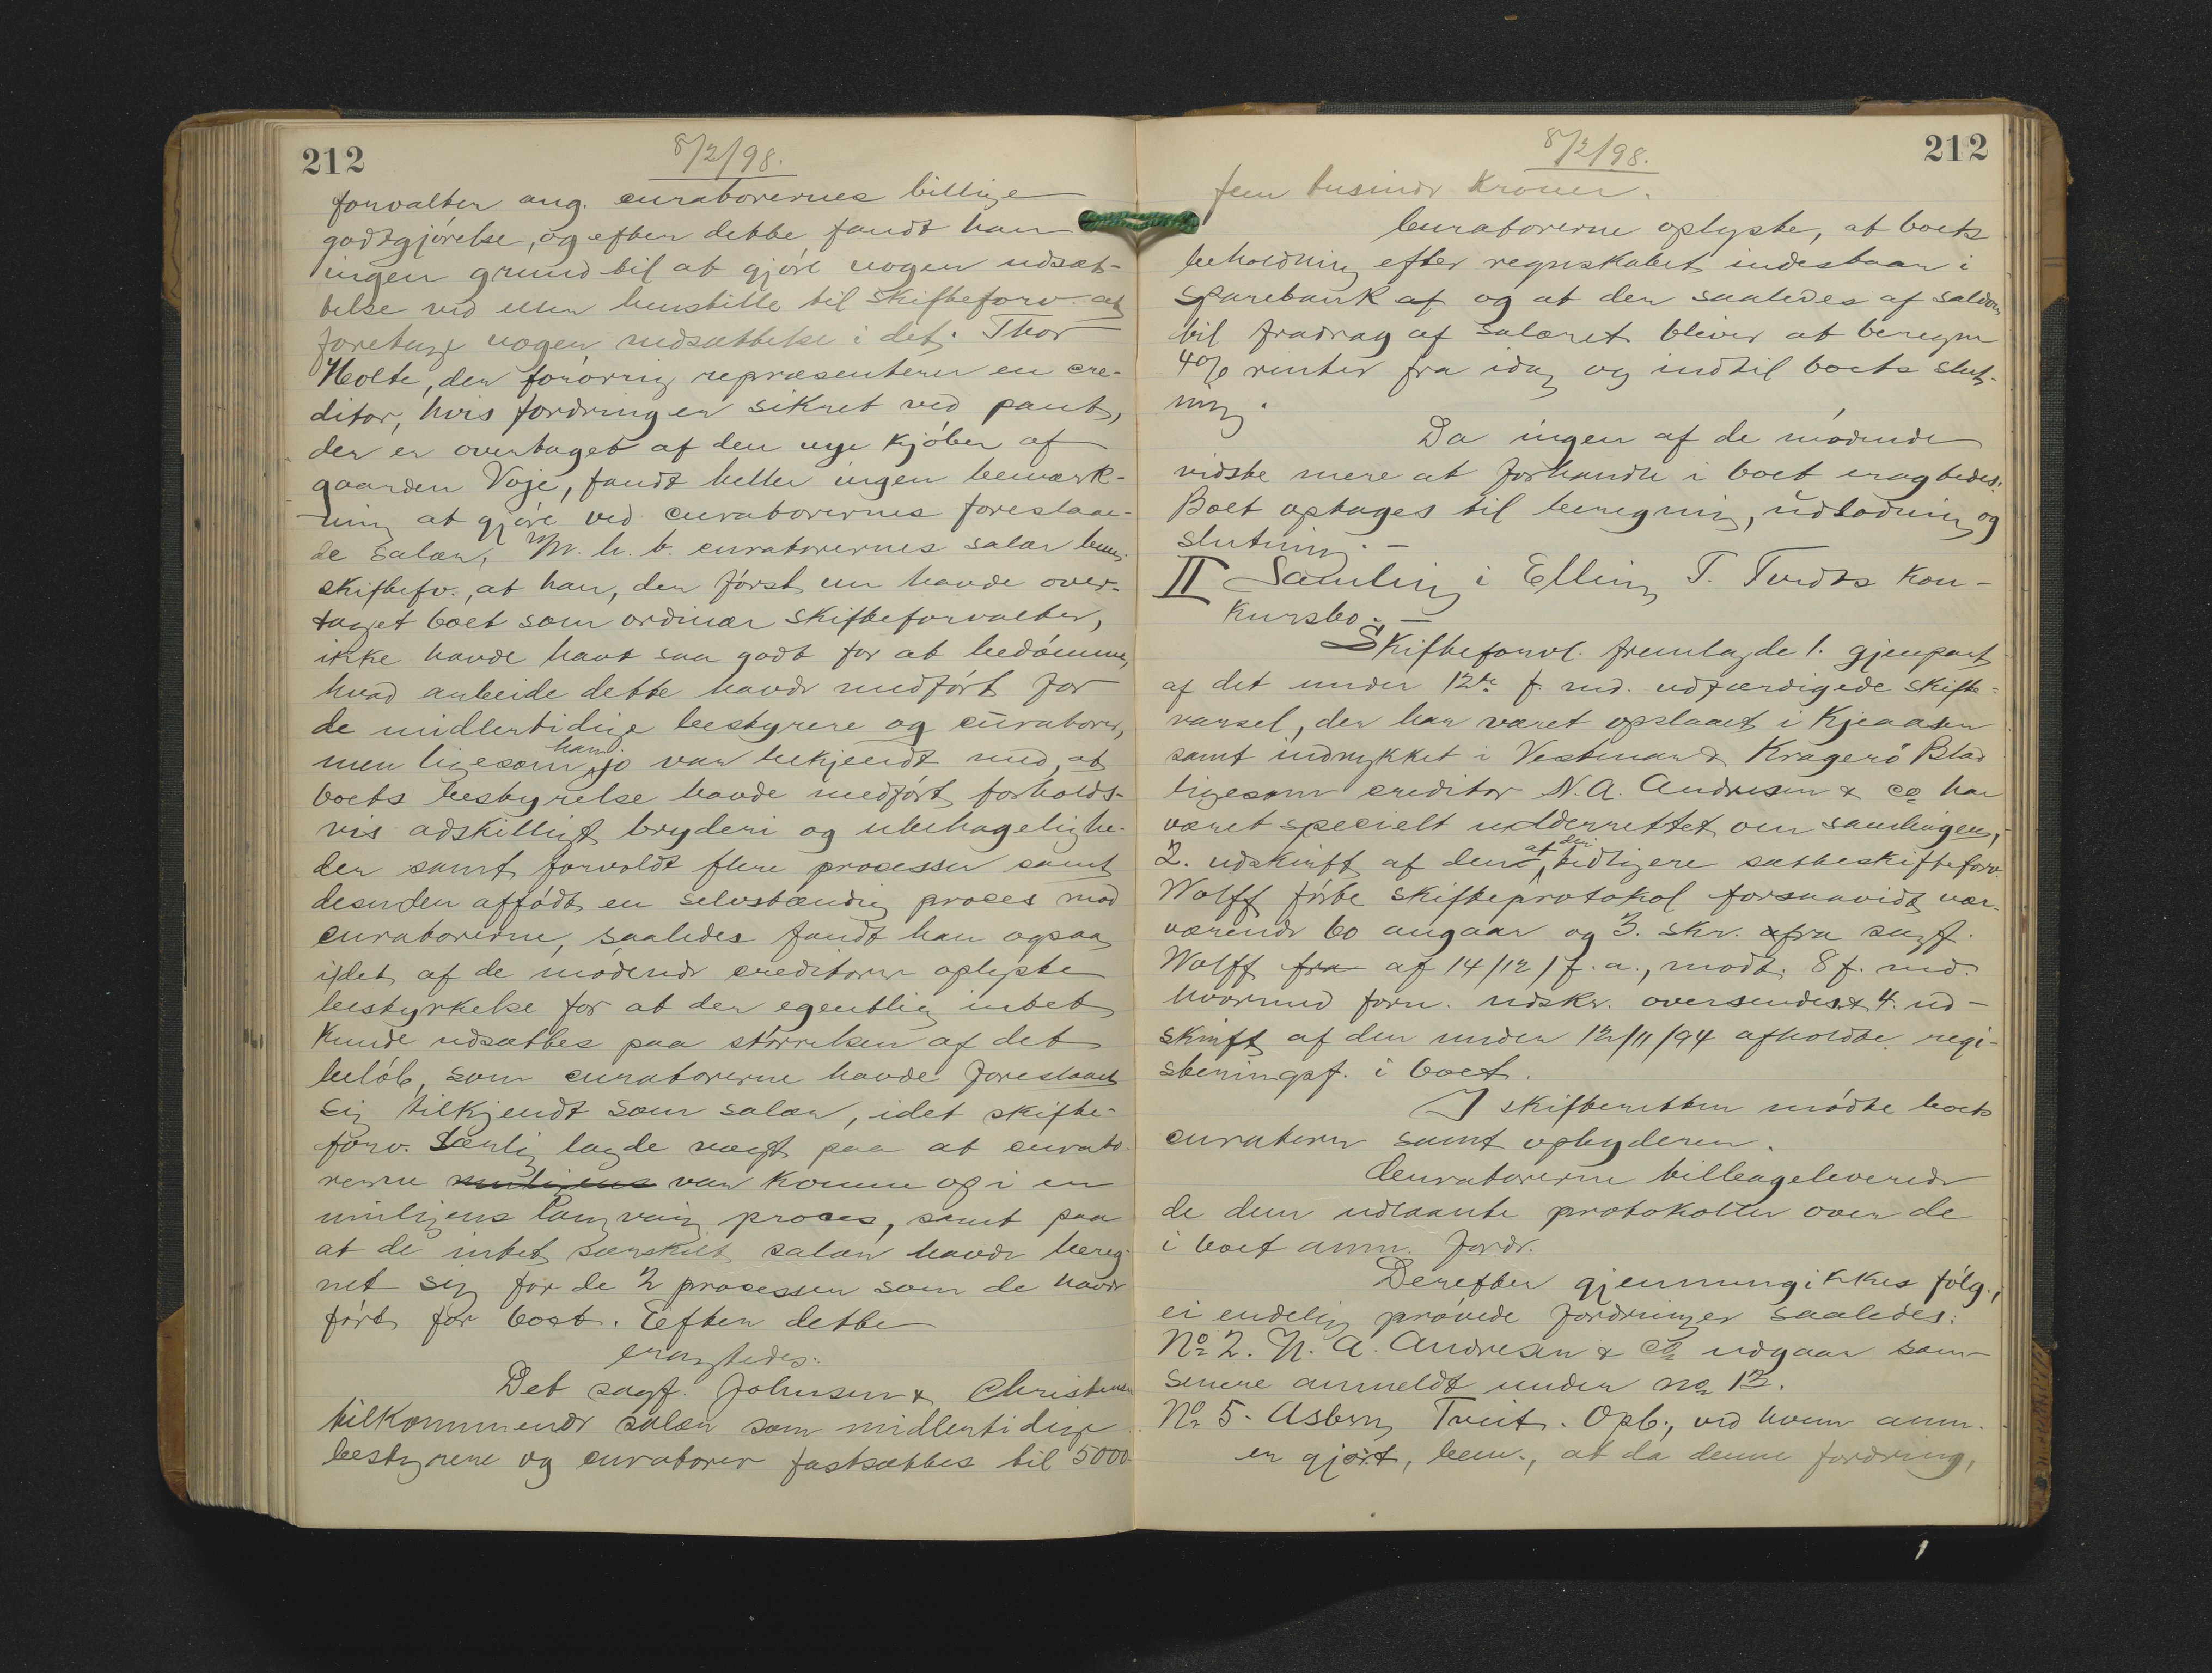 212
8/2/98.
forvalter ang. curatorernes billige
godtgjörelse, og efter dette fandt han
ingen grund til at gjöre nogen udsæt-
telse ved eller henstille til skifteforv. at
foretage nogen nedsættelse i det. Thor
Holte, der forövrig repræsenterer en cre-
ditor, hvis fordring er sikret ved pant,
der er overtaget af den nye kjöber af
gaarden Voje, fandt heller ingen bemærk-
ning at gjöre ved curatorernes foreslaae-
de salær. M. h. t. curatorernes salær bem.
skiftefv., at han, der först nu havde over-
taget boet som ordinær skifteforvalter,
ikke havde havt saa godt for at bedömme,
hvad arbeide dette havde medfört for
de midlertidige bestyrere og curatorer,
men ligesom han jo var bekjendt med, at
boets bestyrelse havde medfört forholds-
vis adskilligt bryderi og ubehagelighe-
der samt forvoldt flere processer samt
desuden affödt en selvstændig proces mod
curatorerne, saaledes fandt han ogsaa
i det af de mödende creditorer oplyste
bestyrkelse for at der egentlig intet
kunde udsættes paa störrelsen af det
belöb, som curatorerne havde foreslaaet
sig tilkjendt som salær, idet skifte-
forv. særlig lagde vægt paa at curato-
rerne muligens var komne op i en
muligens langvarig proces, samt paa
at de intet særskilt salær havde bereg-
net sig for de 2 processer som de havde
fört for boet. Efter dette
eragtedes:
Det sagf. Johnsen & Christensen
tilkommende salær som midlertidige
bestyrere og curatorer fastsættes til 5000
212
8/2/98.
fem tusinde Kroner.
Curatorerne oplyste, at boets
beholdning efter regnskabet indestaar i
sparebank af og at der saaledes af saldoen
til fradrag af salæret bliver at beregne
4% renter fra idag og indtil boets slut-
ning.
Da ingen af de mödende
vidste mere at forhandle i boet eragtedes:
Boet optages til beregning, udlodning og
slutning. —
II Samling i Elling T. Tvedts kon-
kursbo. —
Skifteforvl. fremlagde 1. gjenpart
af det under 12te f. md. udfærdigede skifte-
varsel, der har været opslaaet i Kjeaasen
samt indrykket i Vestmar & Kragerö Blad
ligesom creditor N. A. Andresen & Co har
været specielt underrettet om samlingen,
2. udskrift af den af den tidligere sætteskifteforv.
Wolff förte skifteprotokol forsaavidt nær-
værende bo angaar og 3. skr. fra sagf.
Wolff fra af 14/12 f. a., modt. 8 f. md.
hvormed forn. udskr. oversendes & 4. ud-
skrift af den under 12/11/94 afholdte regi-
streringsf. i boet.
I skifteretten mödte boets
curatorer samt opbyderen.
Curatorerne tilbageleverede
de dem udlaante protokoller over de
i boet anm. fordr.
Derefter gjennemgikkes fölg.,
ei endelig prövede fordringer saaledes:
No 2. N. A. Andresen & Co udgaar som
senere anmeldt under no 13.
No 5. Asberg Tveit. Opb., ved hvem anm.
er gjort, bem., at da denne fordring,